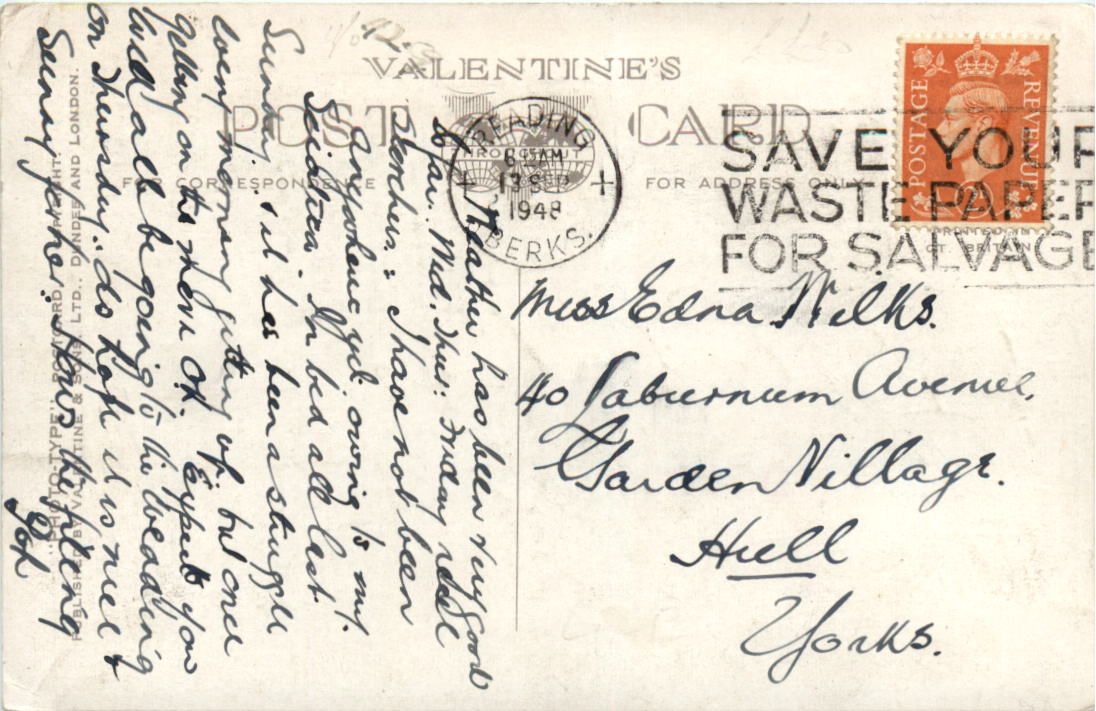 VALENTINE'S
POST CARD
FOR CORRESPONDENCE
FOR ADDRESS ONLY
READING
13 SEP
1948
BERKS.
SAVE YOUR
WASTE PAPER
FOR SALVAGE
POSTAGE
REVENUE
2D
PRINTED IN
GT. BRITAIN
Weather has been very good
so far. Wed. Thur: Friday
I have not been
anywhere yet owing to my
Sciatica. In bed all last
Sunday. & it has been a struggle
every morning getting up but once
getting on its then OK. Expect you
will all be going to the wedding
on Thursday. do hope it is nice &
Sunny for her. Hows the filing
Miss Edna Wilks.
40 Laburnum Avenue,
Garden Village.
Hull
Yorks.
"PHOTO-TYPE" POSTCARD. COPYRIGHT.
PUBLISHED BY VALENTINE & SONS, LTD., DUNDEE AND LONDON.